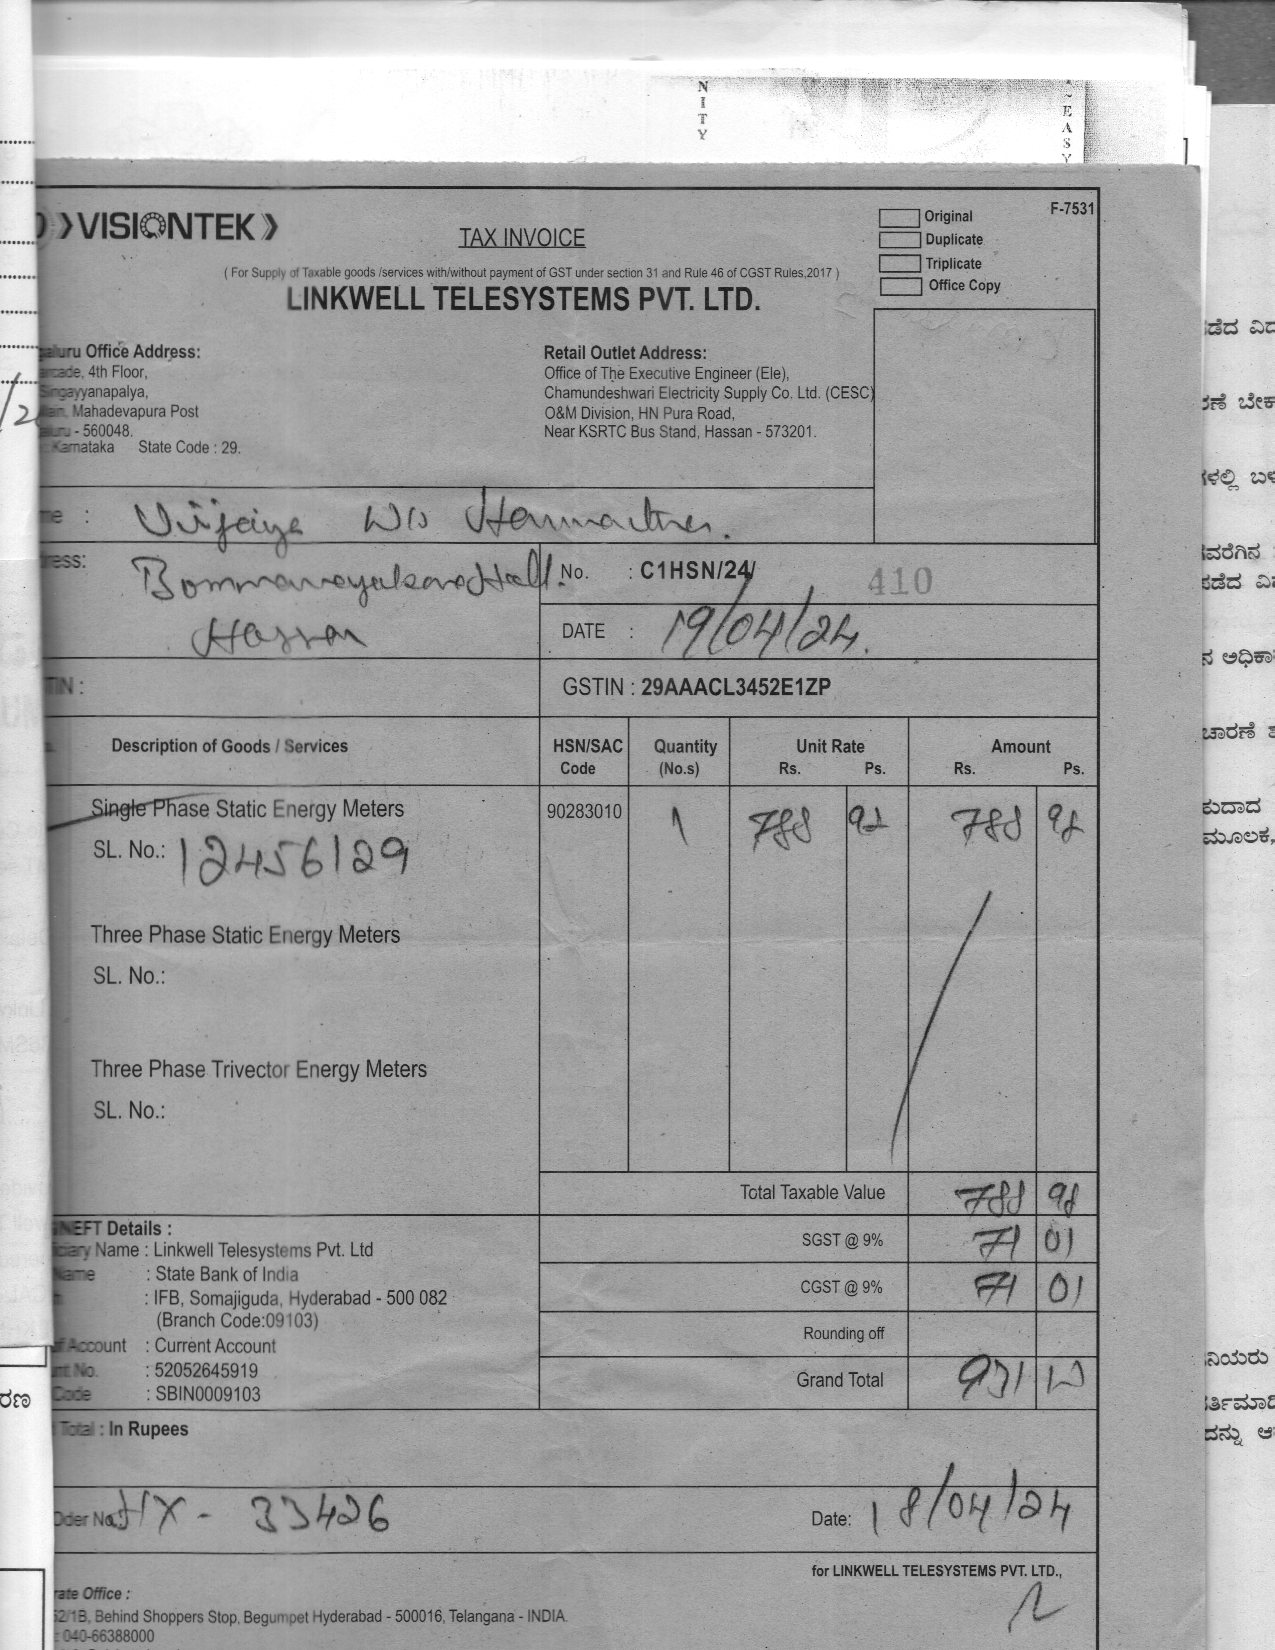 N
I
T
Y
E
A
S
Y
VISIONTEK
TAX INVOICE
Original
Duplicate
Triplicate
Office Copy
F-7531
( For Supply of Taxable goods /services with/without payment of GST under section 31 and Rule 46 of CGST Rules,2017 )
LINKWELL TELESYSTEMS PVT. LTD.
Office Address:
4th Floor,
Singayyanapalya,
Mahadevapura Post
- 560048.
Karnataka State Code : 29.
Retail Outlet Address:
Office of The Executive Engineer (Ele),
Chamundeshwari Electricity Supply Co. Ltd. (CESC)
O&M Division, HN Pura Road,
Near KSRTC Bus Stand, Hassan - 573201.
W/o
Hassan
No. : C1HSN/24/ 410
DATE : 19/04/24.
GSTIN : 29AAACL3452E1ZP
Description of Goods / Services HSN/SAC Code Quantity (No.s) Unit Rate Rs. Ps. Amount Rs. Ps.
Single Phase Static Energy Meters 90283010 1 788 98 788 98
SL. No.: 12456129
Three Phase Static Energy Meters
SL. No.:
Three Phase Trivector Energy Meters
SL. No.:
Total Taxable Value 788 98
SGST @ 9% 71 01
CGST @ 9% 71 01
Rounding off
Grand Total 931 00
NEFT Details :
Name : Linkwell Telesystems Pvt. Ltd
Name : State Bank of India
: IFB, Somajiguda, Hyderabad - 500 082
(Branch Code:09103)
Account : Current Account
No. : 52052645919
Code : SBIN0009103
Total : In Rupees
Order No. HX - 33426
Date: 18/04/24
for LINKWELL TELESYSTEMS PVT. LTD.,
Office :
Behind Shoppers Stop, Begumpet Hyderabad - 500016, Telangana - INDIA.
: 040-66388000